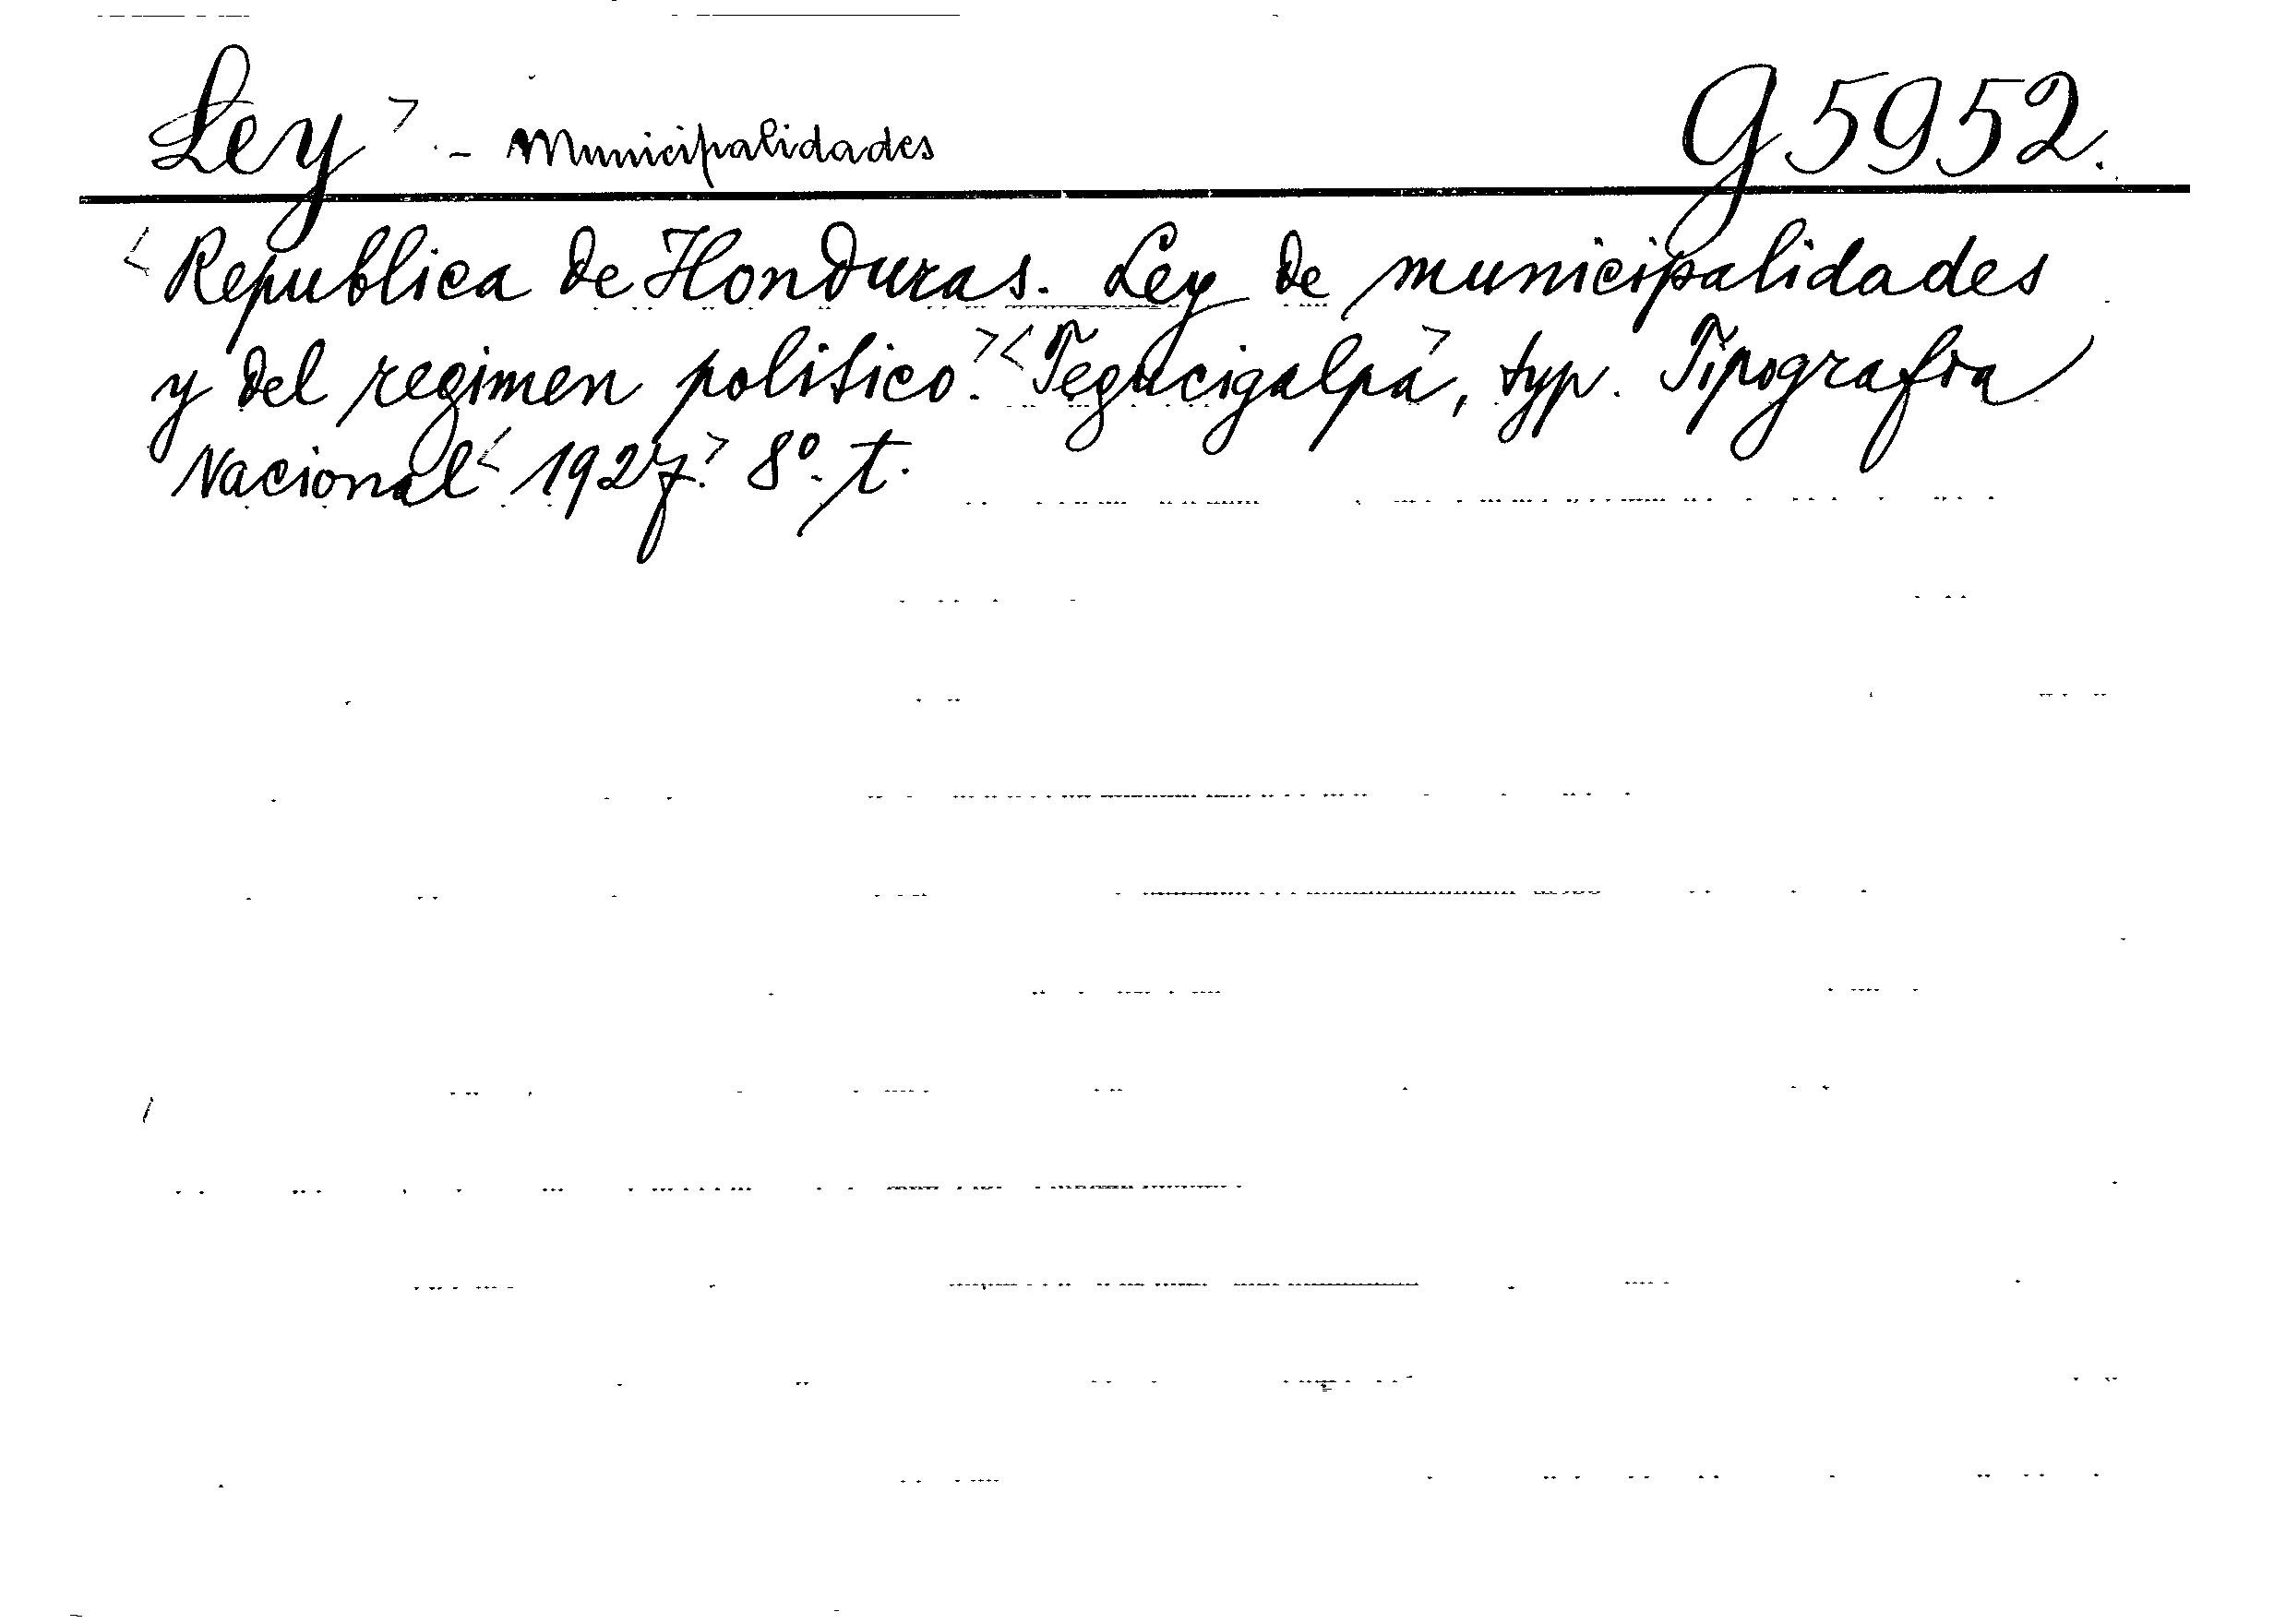 Ley> - Municipalidades G 5952.
<Republica de Honduras. Ley de municipalidades
y del regimen politico.><Tegucigalpa>, typ. Tipografia
Nacional <1927.> 8º. t.